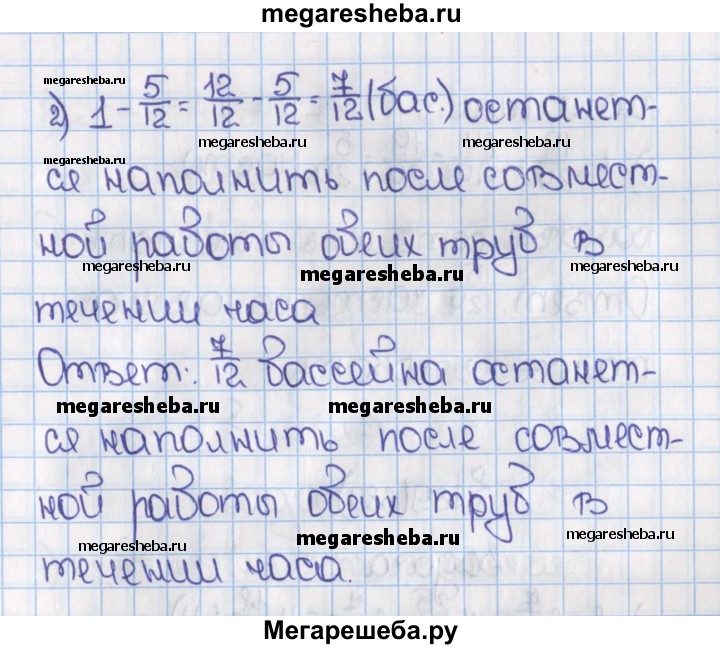 megaresheba.ru
megaresheba.ru
2) 1 - 5/12 = 12/12 - 5/12 = 7/12 (бас.) останет-
megaresheba.ru megaresheba.ru
megaresheba.ru
ся наполнить после совмест-
ной работы обеих труб в
megaresheba.ru megaresheba.ru megaresheba.ru
течении часа
Ответ: 7/12 бассейна останет-
megaresheba.ru megaresheba.ru
ся наполнить после совмест-
ной работы обеих труб в
megaresheba.ru megaresheba.ru megaresheba.ru
течении часа.
Мегарешеба.ру